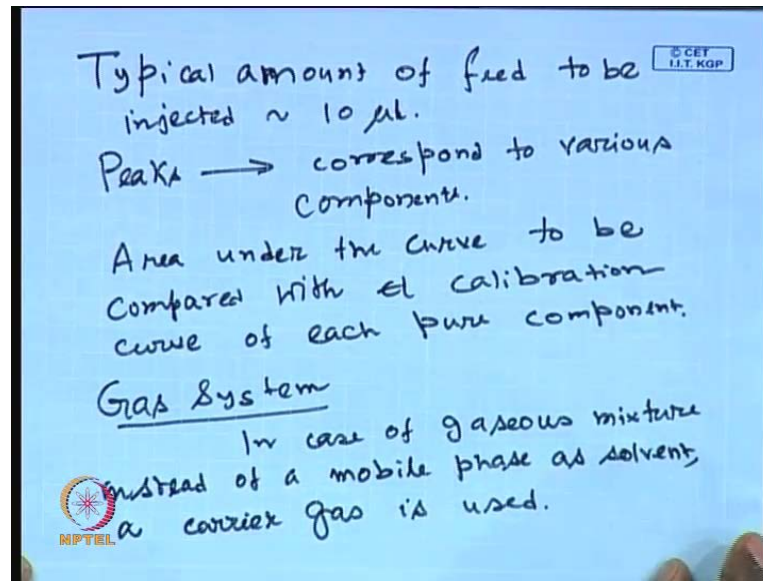 Typical amount of feed to be
© CET
I.I.T. KGP
injected ~ 10 μl.
Peaks → correspond to various
components.
Area under the curve to be
compared with calibration
curve of each pure component.
Gas System
In case of gaseous mixture
instead of a mobile phase as solvent,
a carrier gas is used.
NPTEL